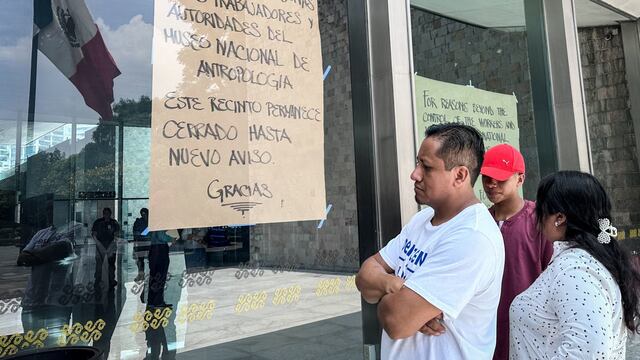 TRABAJADORES Y
AUTORIDADES DEL
MUSEO NACIONAL DE
ANTROPOLOGIA
ESTE RECINTO PERMANECE
CERRADO HASTA
NUEVO AVISO.
GRACIAS
FOR REASONS BEYOND THE
CONTROL OF THE WORKERS AND